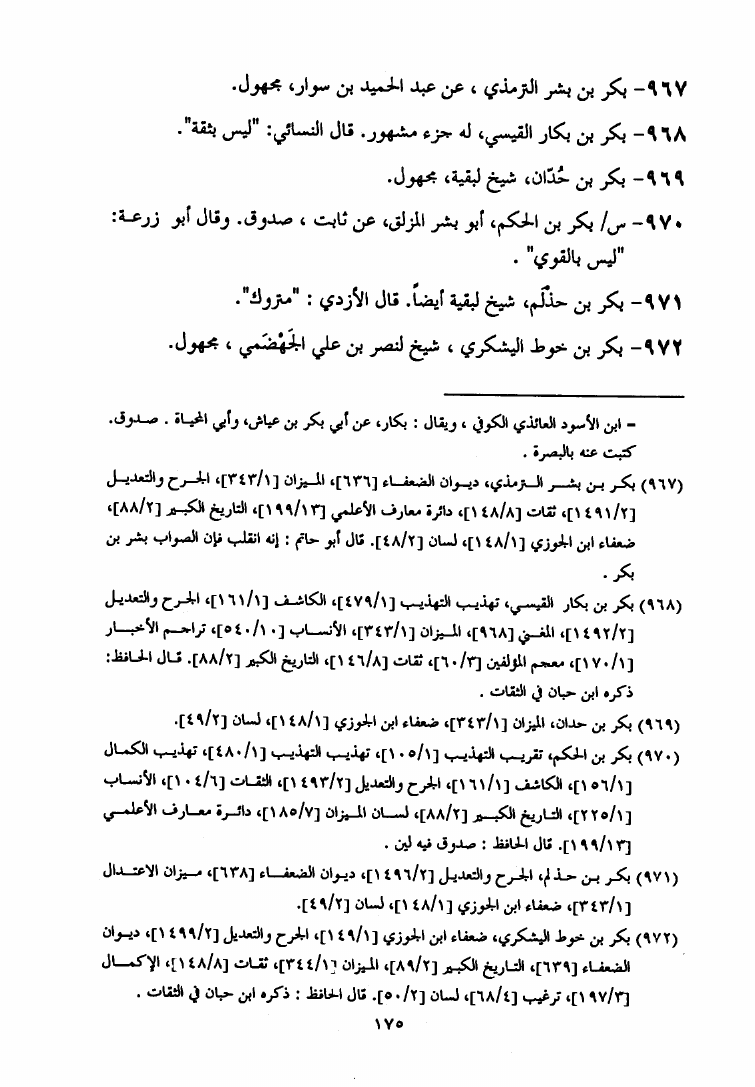 ٩٦٧- بكر بن بشر الترمذي ، عن عبد الحميد بن سوار، مجهول.
٩٦٨- بكر بن بكار القيسي، له جزء مشهور. قال النسائي: "ليس بثقة".
٩٦٩- بكر بن حُدّان، شيخ لبقية، مجهول.
٩٧٠- س/ بكر بن الحكم، أبو بشر المزلق، عن ثابت ، صدوق. وقال أبو زرعة:
"ليس بالقوي" .
٩٧١- بكر بن حذْلَم، شيخ لبقية أيضاً. قال الأزدي : "متروك".
٩٧٢- بكر بن خوط اليشكري ، شيخ لنصر بن علي الجَهْضَمي ، مجهول.
= ابن الأسود العائذي الكوفي ، ويقال : بكار، عن أبي بكر بن عياش، وأبي المحياة . صدوق.
كتبت عنه بالبصرة .
(٩٦٧) بكر بن بشر الترمذي، ديوان الضعفاء [٦٣٦]، الميزان [٣٤٣/١]، الجرح والتعديل
[١٤٩١/٢]، ثقات [١٤٨/٨]، دائرة معارف الأعلمي [١٩٩/١٣]، التاريخ الكبير [٨٨/٢]،
ضعفاء ابن الجوزي [١٤٨/١]، لسان [٤٨/٢]. قال أبو حاتم : إنه انقلب فإن الصواب بشر بن
بكر .
(٩٦٨) بكر بن بكار القيسي، تهذيب التهذيب [٤٧٩/١]، الكاشف [١٦١/١]، الجرح والتعديل
[١٤٩٢/٢]، المغني [٩٦٨]، الميزان [٣٤٣/١]، الأنساب [٥٤٠/١٠]، تراجم الأخبار
[١٧٠/١]، معجم المؤلفين [٦٠/٣]، ثقات [١٤٦/٨]، التاريخ الكبير [٨٨/٢]. قال الحافظ:
ذكره ابن حبان في الثقات .
(٩٦٩) بكر بن حدان، الميزان [٣٤٣/١]، ضعفاء ابن الجوزي [١٤٨/١]، لسان [٤٩/٢].
(٩٧٠) بكر بن الحكم، تقريب التهذيب [١٠٥/١]، تهذيب التهذيب [٤٨٠/١]، تهذيب الكمال
[١٥٦/١]، الكاشف [١٦١/١]، الجرح والتعديل [١٤٩٣/٢]، الثقات [١٠٤/٦]، الأنساب
[٢٢٥/١]، التاريخ الكبير [٨٨/٢]، لسان الميزان [١٨٥/٧]، دائرة معارف الأعلمي
[١٩٩/١٣]. قال الحافظ : صدوق فيه لين .
(٩٧١) بكر بن حذلم، الجرح والتعديل [١٤٩٦/٢]، ديوان الضعفاء [٦٣٨]، ميزان الاعتدال
[٣٤٣/١]، ضعفاء ابن الجوزي [١٤٨/١]، لسان [٤٩/٢].
(٩٧٢) بكر بن خوط اليشكري، ضعفاء ابن الجوزي [١٤٩/١]، الجرح والتعديل [١٤٩٩/٢]، ديوان
الضعفاء [٦٣٩]، التاريخ الكبير [٨٩/٢]، الميزان [٣٤٤/١]، ثقات [١٤٨/٨]، الإكمال
[١٩٧/٣]، ترغيب [٦٨/٤]، لسان [٥٠/٢]. قال الحافظ : ذكره ابن حبان في الثقات .
١٧٥